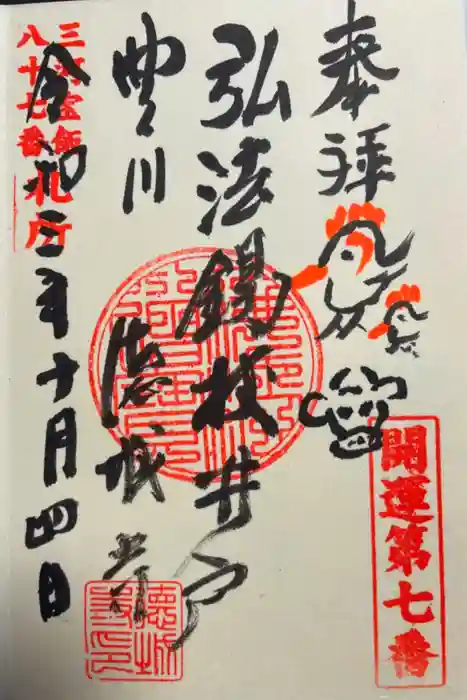 奉拝
開運第七番
弘法錫杖井戸
豊川
徳城寺
三河宝飯
八十七番札所
令和三年十月四日